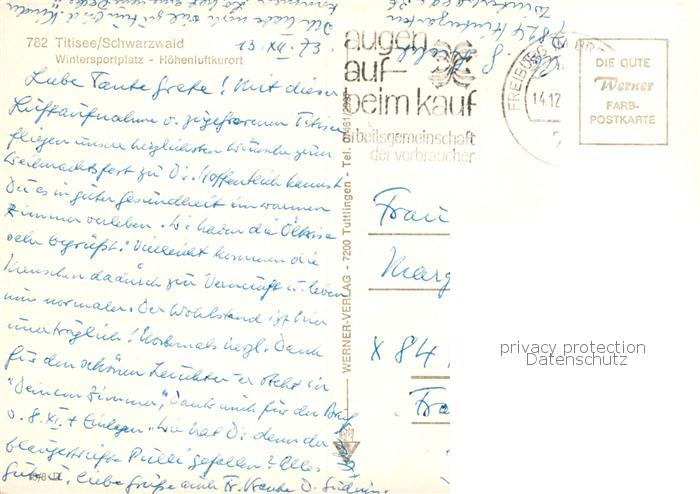 782 Titisee/Schwarzwald
Wintersportplatz - Höhenluftkurort
13. XII. 73.
Liebe Tante Grete! Mit dieser
Luftaufnahme v. zugefrorenen Titisee
fliegen unsre herzlichsten Wünsche zum
Weihnachtsfest zu Dir. Hoffentlich kannst
Du es in guter Gesundheit im warmen
Zimmer verleben. Wir haben die Ölkrise
sehr begrüßt! Vielleicht kommen die
Menschen dadurch zur Vernunft u. leben
nun normaler. Der Wohlstand ist hier
unerträglich! Nochmals herzl. Dank
für den schönen Leuchter - er steht in
"Deinem Zimmer", Dank auch für den Brief
v. 8. XI. + Einlagen. Wie hat Dir denn der
blaugestreifte Pulli gefallen? Alles
Gute u. liebe Grüße auch Fr. D.
WERNER-VERLAG - 7200 Tuttlingen - Tel.
augen
auf-
beim kauf
arbeitsgemeinschaft
der verbraucher
FREIBURG IM BR
14.12
DIE GUTE
Werner
FARB-
POSTKARTE
7824 Hinterzarten
Frau
Marg
X 84
Fra
privacy protection
Datenschutz